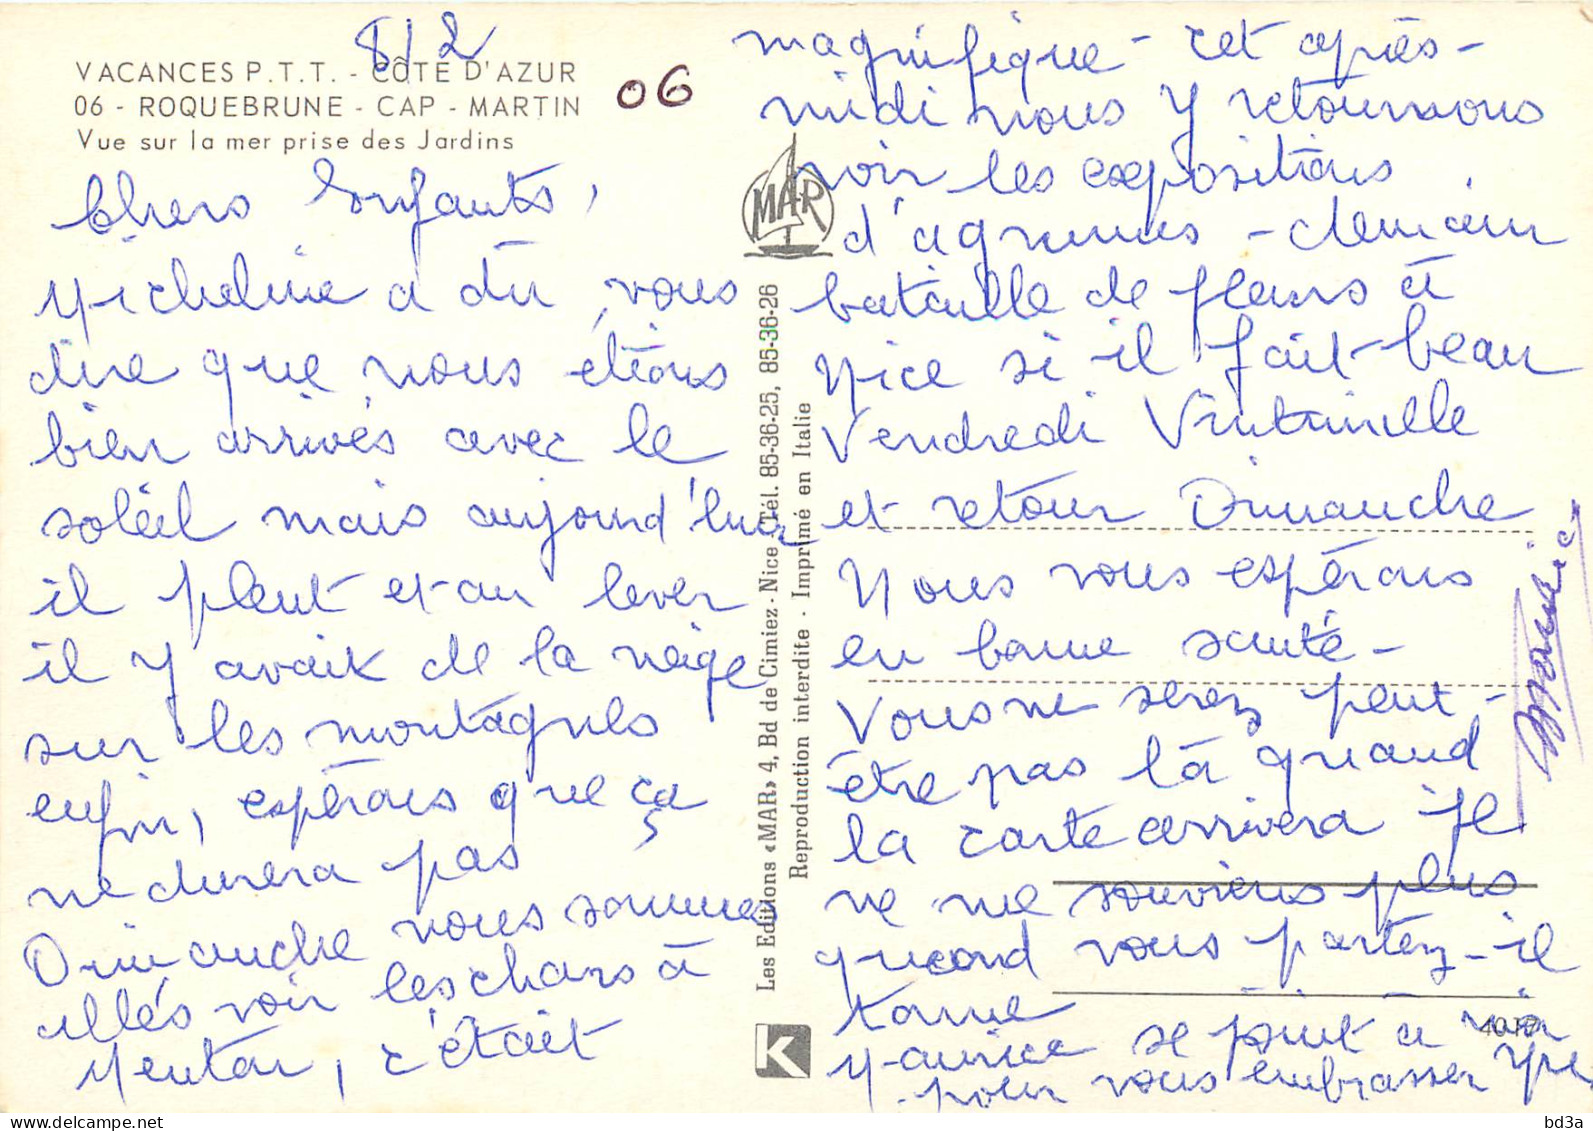 8/2
VACANCES P.T.T. - CÔTE D'AZUR
06 - ROQUEBRUNE - CAP - MARTIN
Vue sur la mer prise des Jardins
06
Chers Enfants,
Micheline a dû vous
dire que nous étions
bien arrivés avec le
soleil mais aujourd'hui
il pleut et au lever
il y avait de la neige
sur les montagnes
enfin, espérons que ça
ne durera pas
Dimanche nous sommes
allés voir les chars à
Menton, c'était
magnifique - cet après-
midi nous y retournons
voir les expositions
d'agrumes - demain
bataille de fleurs à
Nice si il fait beau
Vendredi Vintimille
et retour Dimanche
Nous vous espérons
en bonne santé -
Vous ne serez peut-
être pas là quand
la carte arrivera je
ne me souviens plus
quand vous partez - il
tonne
Maurice se joint à moi
pour vous embrasser
MAR
Les Editions «MAR» 4, Bd de Cimiez - Nice Tél. 85-36-25, 85-36-26
Reproduction interdite - Imprimé en Italie
K